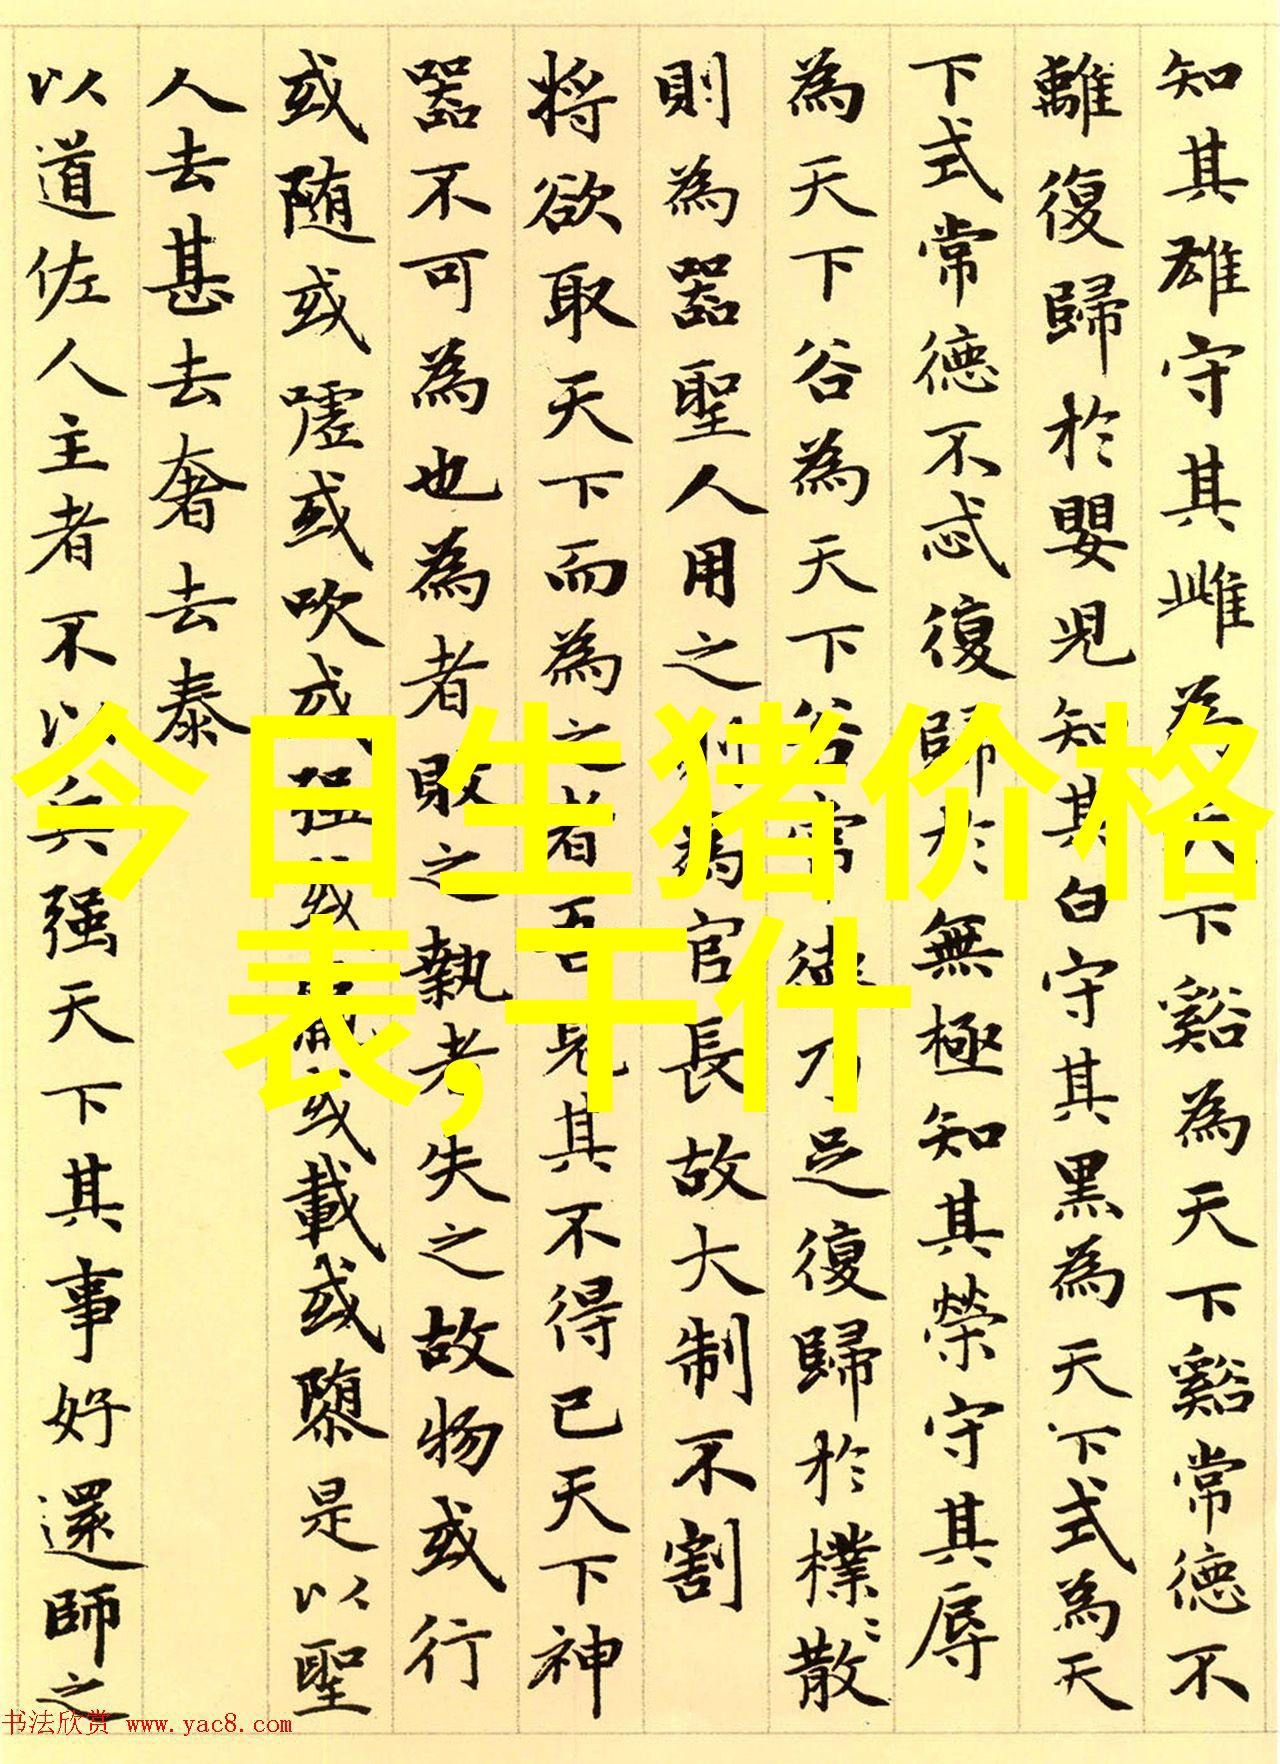 知其雄守其雌為天下谿為天下谿常德不
離復歸於嬰兒知其白守其黑為天下式為天
下式常德不忒復歸於無極知其榮守其辱
為天下谷為天下谷常德乃足復歸於樸樸散
則為器聖人用之則為官長故大制不割
将欲取天下而為之者吾見其不得已天下神
器不可為也為者敗之執者失之故物或行
或随或噓或吹或强或羸或載或隳是以聖
人去甚去奢去泰
以道佐人主者不以兵强天下其事好還師之
今日生猪价格
表,干什
书法欣赏 www.yac8.com